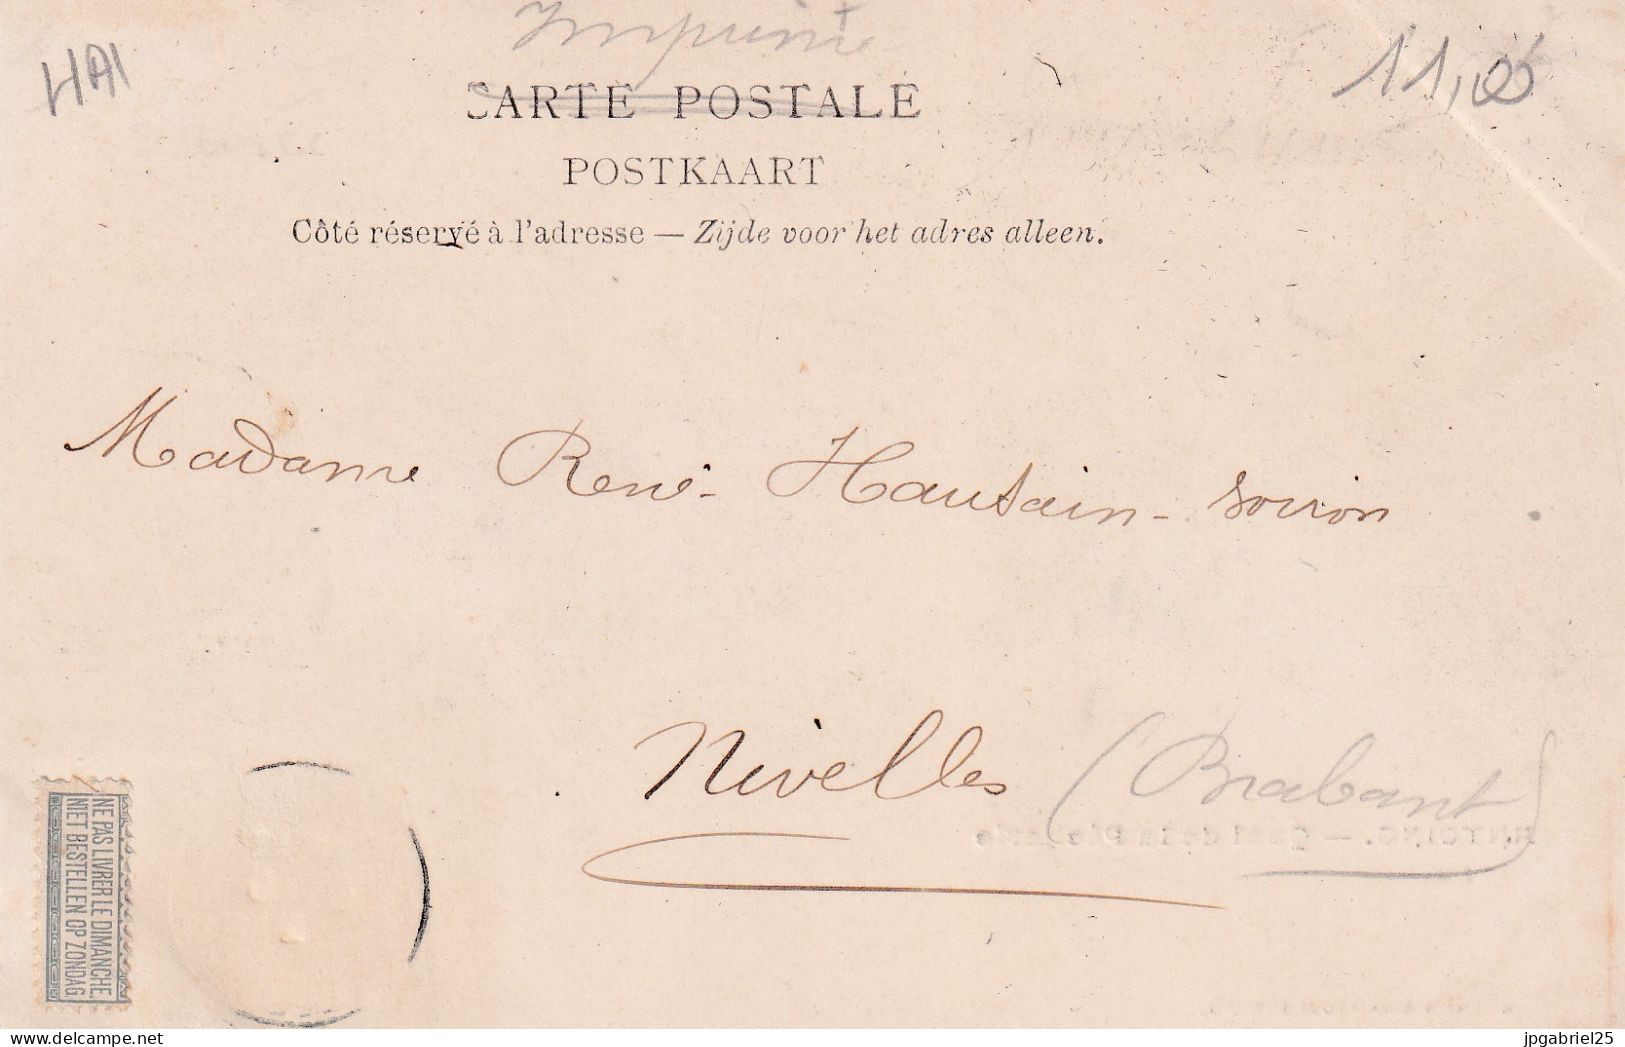 HAI
Imprimé
11,00
CARTE POSTALE
POSTKAART
Côté réservé à l'adresse — Zijde voor het adres alleen.
Madame René Hautain-
Nivelles (Brabant)
NE PAS LIVRER LE DIMANCHE.
NIET BESTELLEN OP ZONDAG.
jpgabriel25